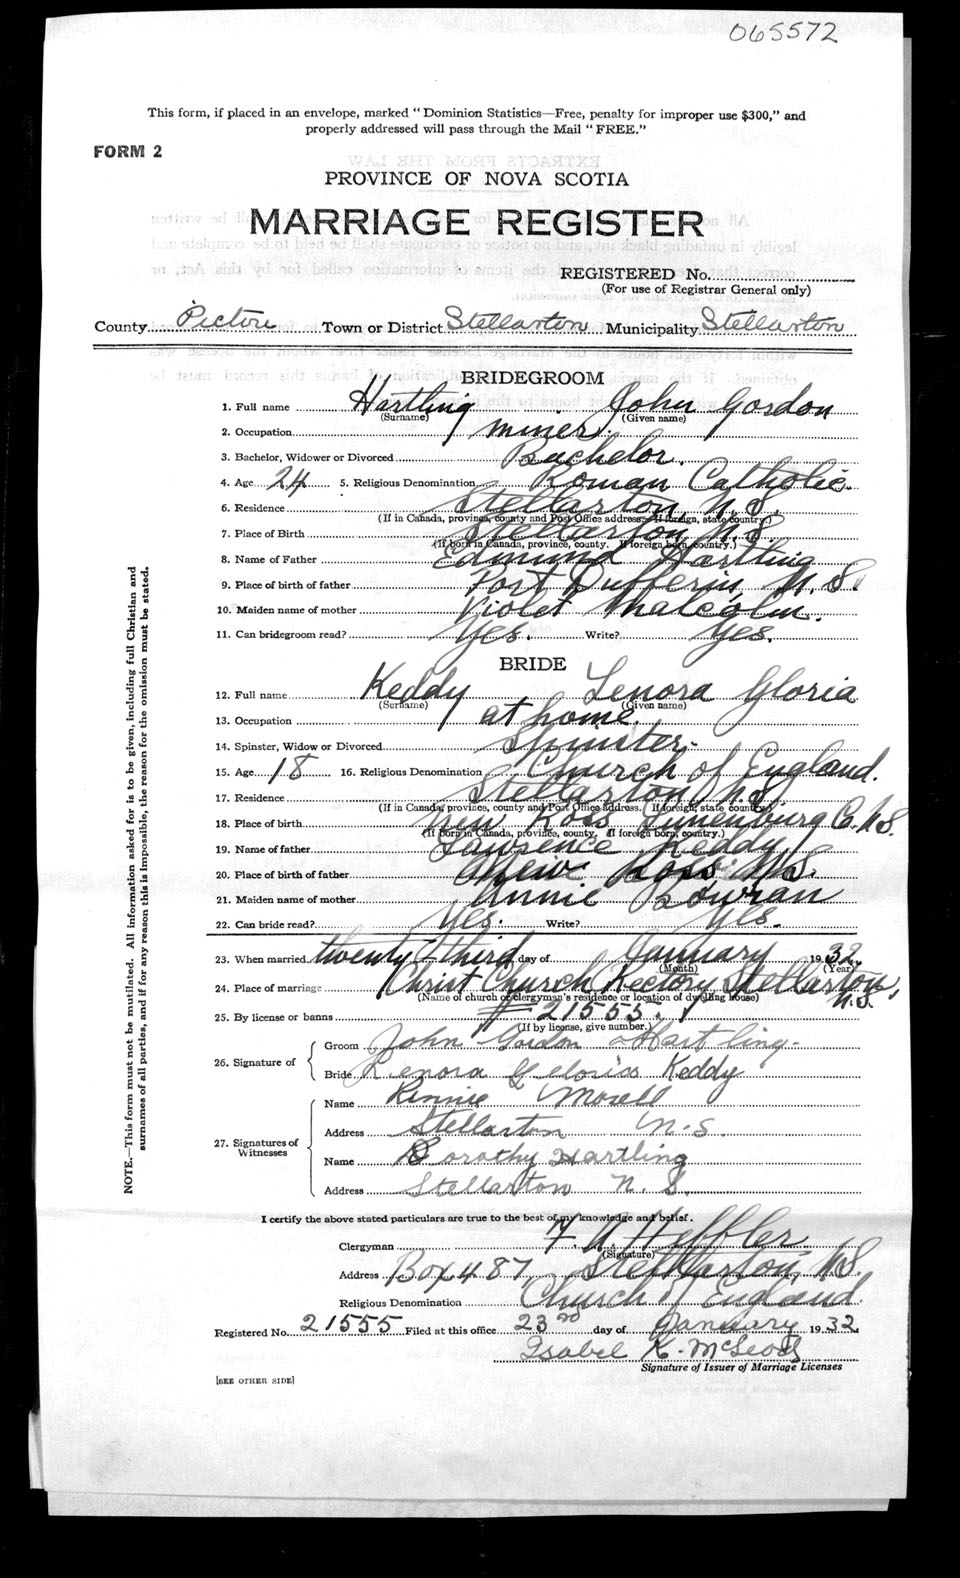 065572
This form, if placed in an envelope, marked "Dominion Statistics—Free, penalty for improper use $300," and
properly addressed will pass through the Mail "FREE."
FORM 2
PROVINCE OF NOVA SCOTIA
MARRIAGE REGISTER
REGISTERED No.
(For use of Registrar General only)
County Pictou Town or District Stellarton Municipality Stellarton
BRIDEGROOM
1. Full name Hartling John Gordon
(Surname) (Given name)
2. Occupation miner.
3. Bachelor, Widower or Divorced Bachelor.
4. Age 24 5. Religious Denomination Roman Catholic.
6. Residence Stellarton, N.S.
(If in Canada, province, county and Post Office address. If foreign, state country.)
7. Place of Birth Stellarton, N.S.
(If born in Canada, province, county. If foreign born, country.)
8. Name of Father Edmund Hartling
9. Place of birth of father Port Dufferin, N.S.
10. Maiden name of mother Violet Malcolm.
11. Can bridegroom read? Yes. Write? Yes.
BRIDE
12. Full name Keddy Lenora Gloria
(Surname) (Given name)
13. Occupation at home.
14. Spinster, Widow or Divorced Spinster.
15. Age 18 16. Religious Denomination Church of England.
17. Residence Stellarton N.S.
(If in Canada, province, county and Post Office address. If foreign, state country.)
18. Place of birth New Ross Lunenburg Co. N.S.
(If born in Canada, province, county. If foreign born, country.)
19. Name of father Lawrence Keddy
20. Place of birth of father New Ross N.S.
21. Maiden name of mother Annie
22. Can bride read? Yes. Write? Yes.
23. When married twenty-third day of January 1932.
(Month) (Year)
24. Place of marriage Christ Church Rectory Stellarton,
N.S.
(Name of church or clergyman's residence or location of dwelling house)
25. By license or banns # 21555.
(If by license, give number.)
26. Signature of
Groom John Gordon Hartling
Bride Lenora Gloria Keddy
27. Signatures of
Witnesses
Name
Address Stellarton N.S.
Name Dorothy Hartling
Address Stellarton N.S.
NOTE.—This form must not be mutilated. All information asked for is to be given, including full Christian and
surnames of all parties, and if for any reason this is impossible, the reason for the omission must be stated.
I certify the above stated particulars are true to the best of my knowledge and belief.
Clergyman Heffler
(Signature)
Address Box 487 Stellarton, N.S.
Religious Denomination Church of England
Registered No. 21555 Filed at this office 23rd day of January 1932
Isabel K. McLeod
Signature of Issuer of Marriage Licenses
[SEE OTHER SIDE]